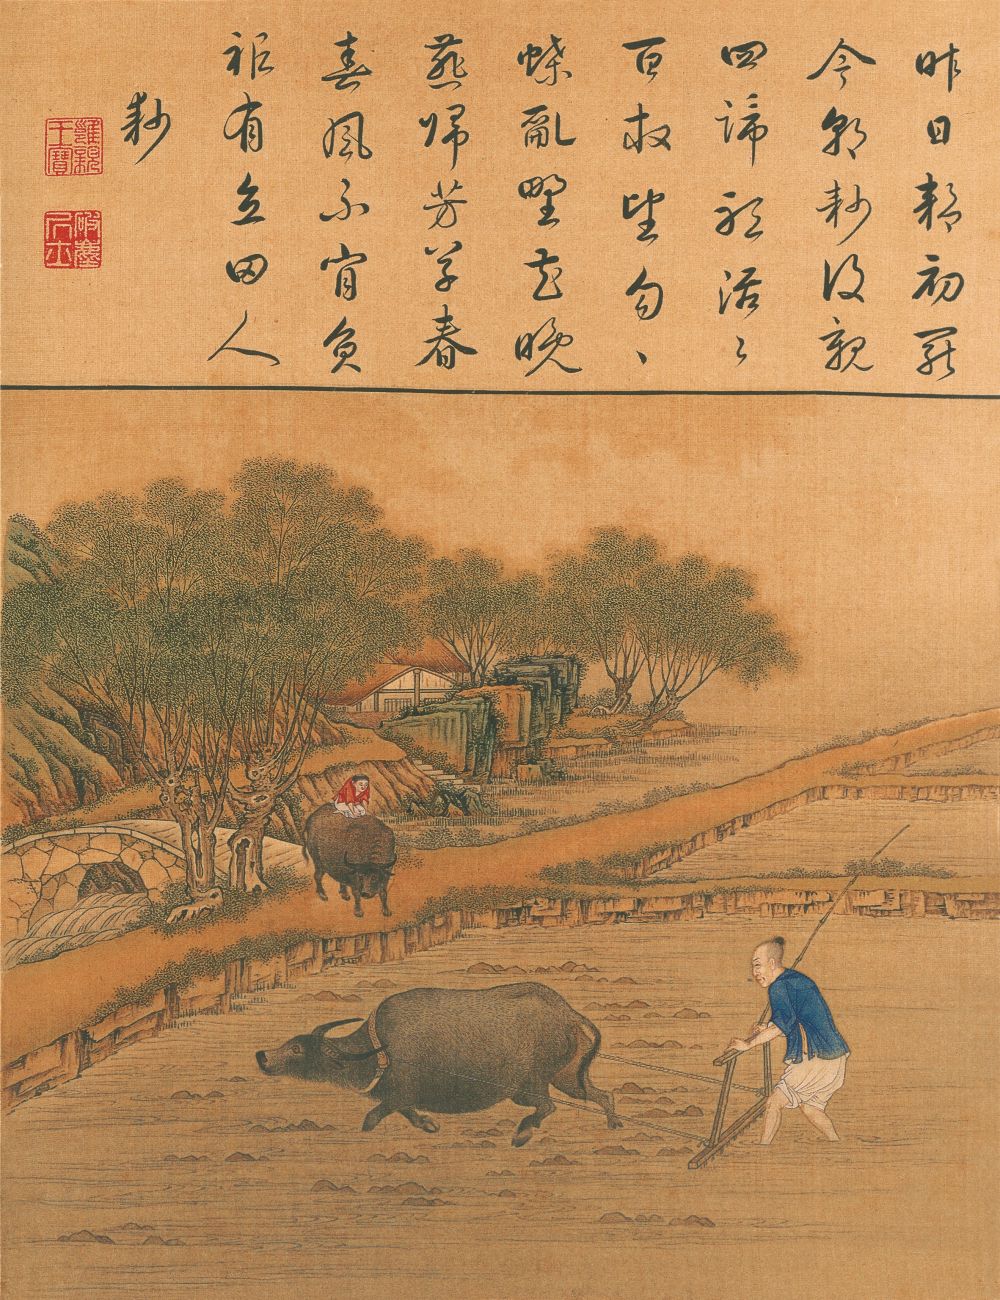 昨日耕初罷
今朝耖復親
四蹄聽活〻
百畝望勻〻
蝶亂野花晚
燕歸芳草春
春風不肯負
祇有立田人
耖
雍親王寶
破塵居士